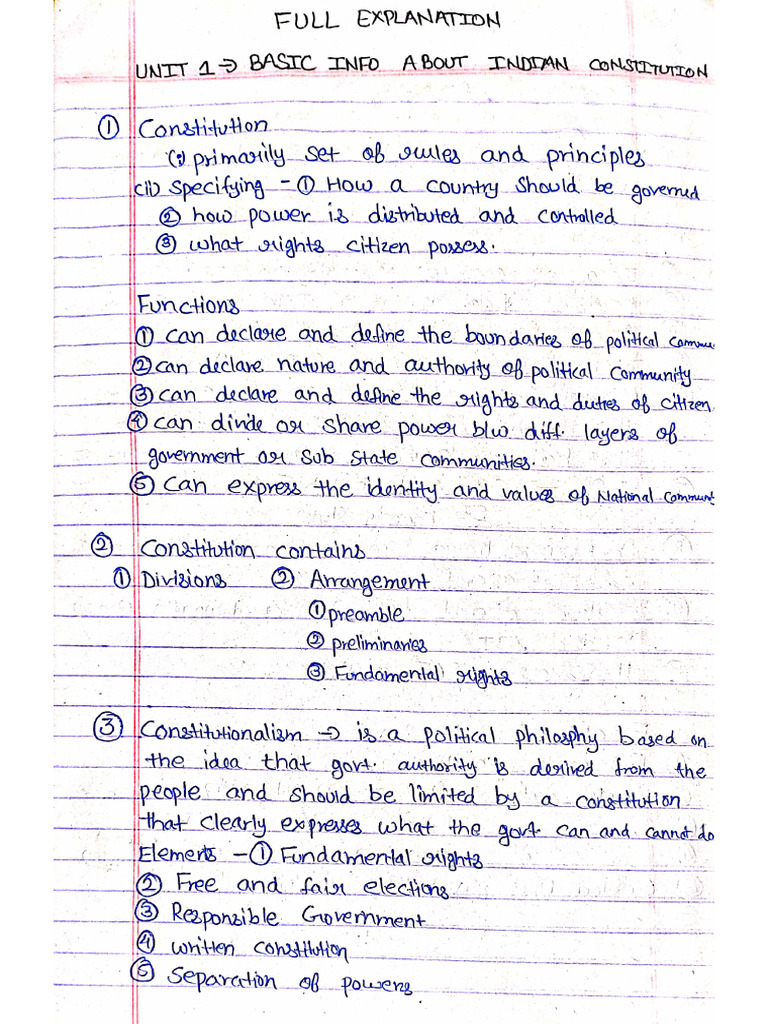 FULL EXPLANATION
UNIT 1 → BASIC INFO ABOUT INDIAN CONSTITUTION
① Constitution
(i) primarily set of rules and principles
(ii) specifying - ① How a country should be governed
② how power is distributed and controlled
③ what rights citizen possess.
Functions
① can declare and define the boundaries of political commu
② can declare nature and authority of political community
③ can declare and define the rights and duties of citizen
④ can divide or share power b/w diff. layers of
government or sub state communities.
⑤ can express the identity and values of National commun
② Constitution contains
① Divisions ② Arrangement
① preamble
② preliminaries
③ Fundamental rights
③ Constitutionalism → is a political philosphy based on
the idea that govt. authority is derived from the
people and should be limited by a constitution
that clearly expresses what the govt. can and cannot do
Elements - ① Fundamental rights
② Free and fair elections
③ Responsible Government
④ written constitution
⑤ separation of powers